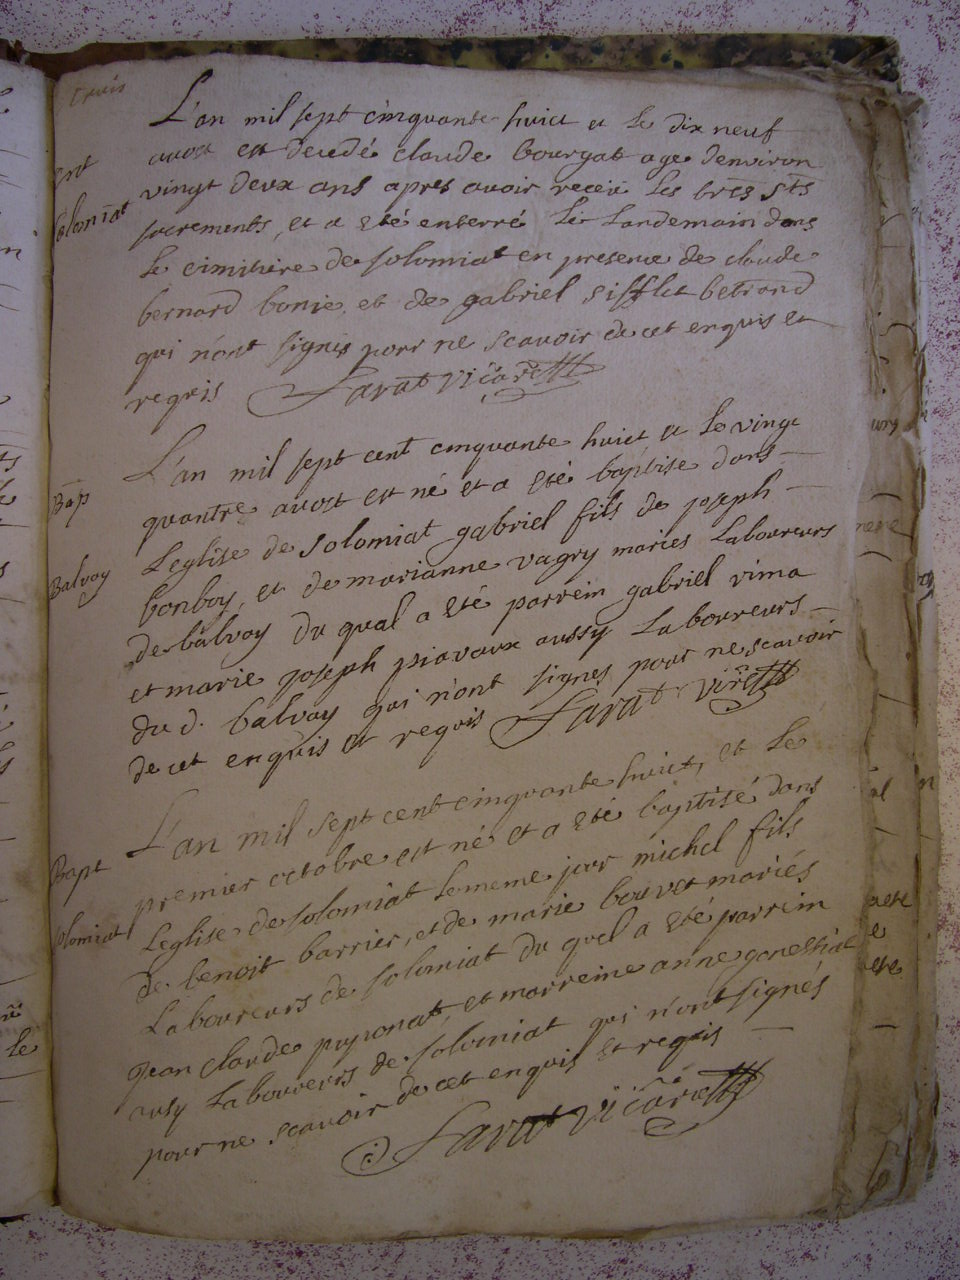 trois
L'an mil sept cinquante huict et le dix neuf
Ent
avost est decedé claude bourgat age denviron
Solomiat
vingt deux ans apres avoir receu les tres sts
sacrements, et a eté enterré le landemain dans
le cimitiere de solomiat en presence de claude
bernard bonie, et de gabriel sifflet betrand
qui n'ont signés pour ne scavoir de cet enquis et
requis Sarat vicaire
L'an mil sept cent cinquante huict et le vingt
Bap
quantre avost est né et a eté baptise dans
Leglise de solomiat gabriel fils de joseph
Balvay
bonboy, et de marianne vagry maries Laboureurs
de balvay du qual a eté parrein gabriel vima
et marie joseph piavaux aussy Laboureurs
du d. balvay qui n'ont signes pour ne scavoir
de cet enquis et requis Sarat vire
L'an mil sept cent cinquante huict, et le
Bapt
premier octobre est né et a eté baptisé dans
solomiat
Leglise de solomiat le meme jour michel fils
de benoit barrier, et de marie bouvet mariés
Laboureurs de solomiat du quel a eté parrein
jean claude puponat, et marreine anne genestiat
ausy Laboureurs de solomiat qui n'ont signés
pour ne scavoir de cet enquis et requis
Sarat vicaire